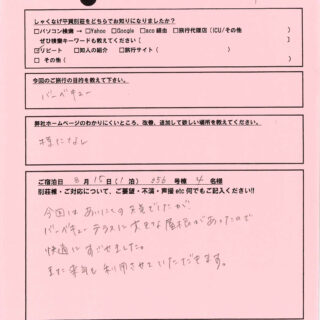 しゃくなげ平貸別荘をどちらでお知りになりましたか?
□パソコン検索 → □Yahoo □Google □aco経由 □旅行代理店(ICU/その他 )
ぜひ検索キーワードも教えてください( )
☑リピート □知人の紹介 □旅行サイト( )
□その他( )
今回のご旅行の目的を教えて下さい。
バーベキュー
弊社ホームページのわかりにくいところ、改善、追加して欲しい場所を教えてください。
特になし
ご宿泊日 8月15日(1泊) 356号棟 4名様
別荘種・ご対応について、ご要望・不満・声援 etc 何でもご記入ください!!
今回はあいにくの天気でしたが、
バーベキューテラスに大きな屋根があったので
快適にすごせました。
また来年も利用させていただきます。